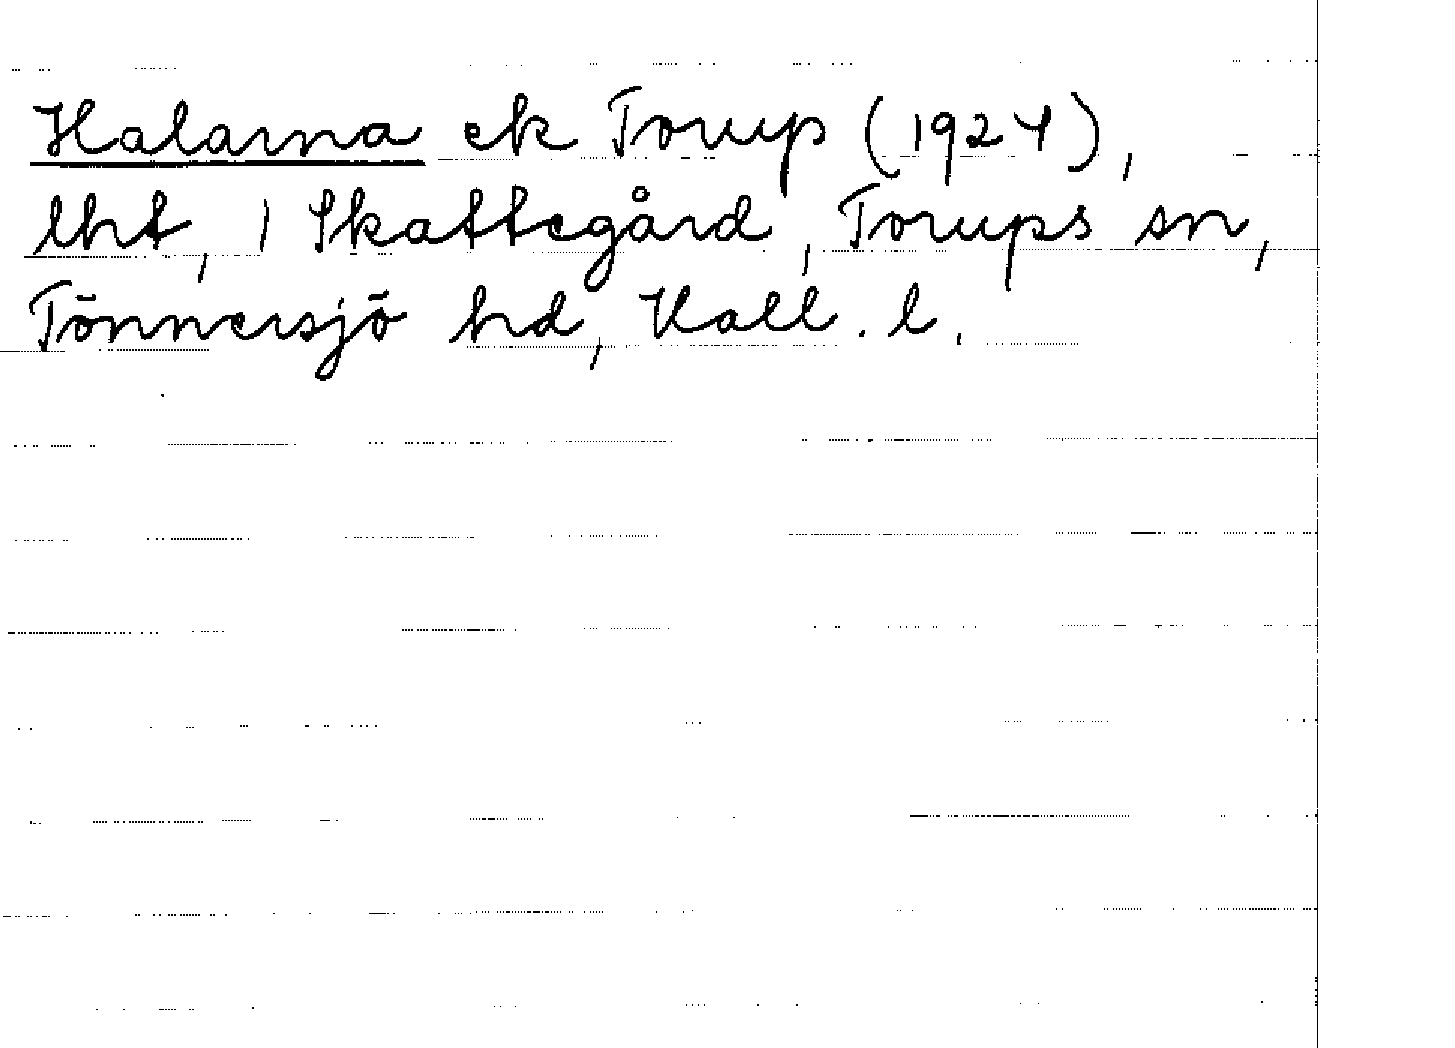 Halarna ek Torup (1924),
lht, 1 Skattegård, Torups sn,
Tönnersjö hd, Hall. l.